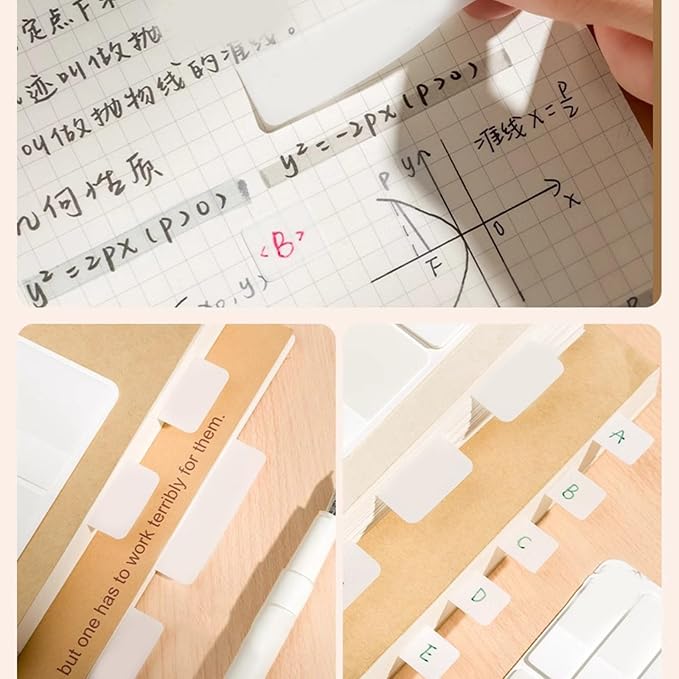 定点F
迹叫做抛
叫做抛物线的准线。
几何性质
y²=-2px(p>0)
y²=2px(p>0)
准线x=p/2
P
y
x
O
F
<B>
x₀,y)
but one has to work terribly for them.
A
B
C
D
E